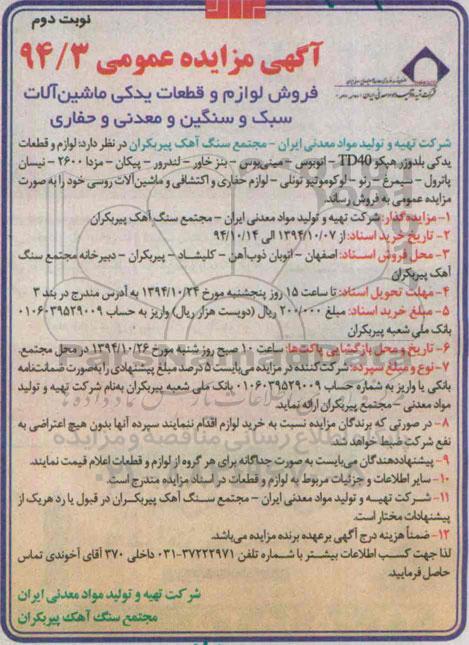 نوبت دوم
آگهی مزایده عمومی ۹۴/۳
فروش لوازم و قطعات یدکی ماشین‌آلات
سبک و سنگین و معدنی و حفاری
شرکت تهیه و تولید مواد معدنی ایران - مجتمع سنگ آهک پیربکران در نظر دارد: لوازم و قطعات
یدکی بلدوزر هپکو TD40 - اتوبوس - مینی‌بوس - بنز خاور - لندرور - پیکان - مزدا ۲۶۰۰ - نیسان
پاترول - سیمرغ - رنو - لوکوموتیو تونلی - لوازم حفاری و اکتشافی و ماشین‌آلات روسی خود را به صورت
مزایده عمومی به فروش رساند.
۱- مزایده‌گذار: شرکت تهیه و تولید مواد معدنی ایران - مجتمع سنگ آهک پیربکران
۲- تاریخ خرید اسناد: از ۱۳۹۴/۱۰/۰۷ الی ۹۴/۱۰/۱۴
۳- محل فروش اسناد: اصفهان - اتوبان ذوب‌آهن - کلیشاد - پیربکران - دبیرخانه مجتمع سنگ
آهک پیربکران
۴- مهلت تحویل اسناد: تا ساعت ۱۵ روز پنجشنبه مورخ ۱۳۹۴/۱۰/۲۴ به آدرس مندرج در بند ۳
۵- مبلغ خرید اسناد: مبلغ ۲۰۰/۰۰۰ ریال (دویست هزار ریال) واریز به حساب ۰۱۰۶۰۳۹۵۲۹۰۰۹
بانک ملی شعبه پیربکران
۶- تاریخ و محل بازگشایی پاکت‌ها: ساعت ۱۰ صبح روز شنبه مورخ ۱۳۹۴/۱۰/۲۶ در محل مجتمع.
۷- نوع و مبلغ سپرده: شرکت‌کننده در مزایده می‌بایست ۵ درصد مبلغ پیشنهادی را به‌صورت ضمانت‌نامه
بانکی یا واریز به شماره حساب ۰۱۰۶۰۳۹۵۲۹۰۰۹ بانک ملی شعبه پیربکران به‌نام شرکت تهیه و تولید
مواد معدنی - مجتمع پیربکران ارائه نماید.
۸- در صورتی که برندگان مزایده نسبت به خرید لوازم اقدام ننمایند سپرده آنها بدون هیچ اعتراضی به
نفع شرکت ضبط خواهد شد.
۹- پیشنهاددهندگان می‌بایست به صورت جداگانه برای هر گروه از لوازم و قطعات اعلام قیمت نمایند.
۱۰- سایر اطلاعات و جزئیات مربوط به لوازم و قطعات در اسناد مزایده مندرج است.
۱۱- شرکت تهیه و تولید مواد معدنی ایران - مجتمع سنگ آهک پیربکران در قبول یا رد هریک از
پیشنهادات مختار است.
۱۲- ضمناً هزینه درج آگهی برعهده برنده مزایده می‌باشد.
لذا جهت کسب اطلاعات بیشتر با شماره تلفن ۳۷۲۲۲۹۷۱-۰۳۱ داخلی ۳۷۰ آقای آخوندی تماس
حاصل فرمایید.
شرکت تهیه و تولید مواد معدنی ایران
مجتمع سنگ آهک پیربکران